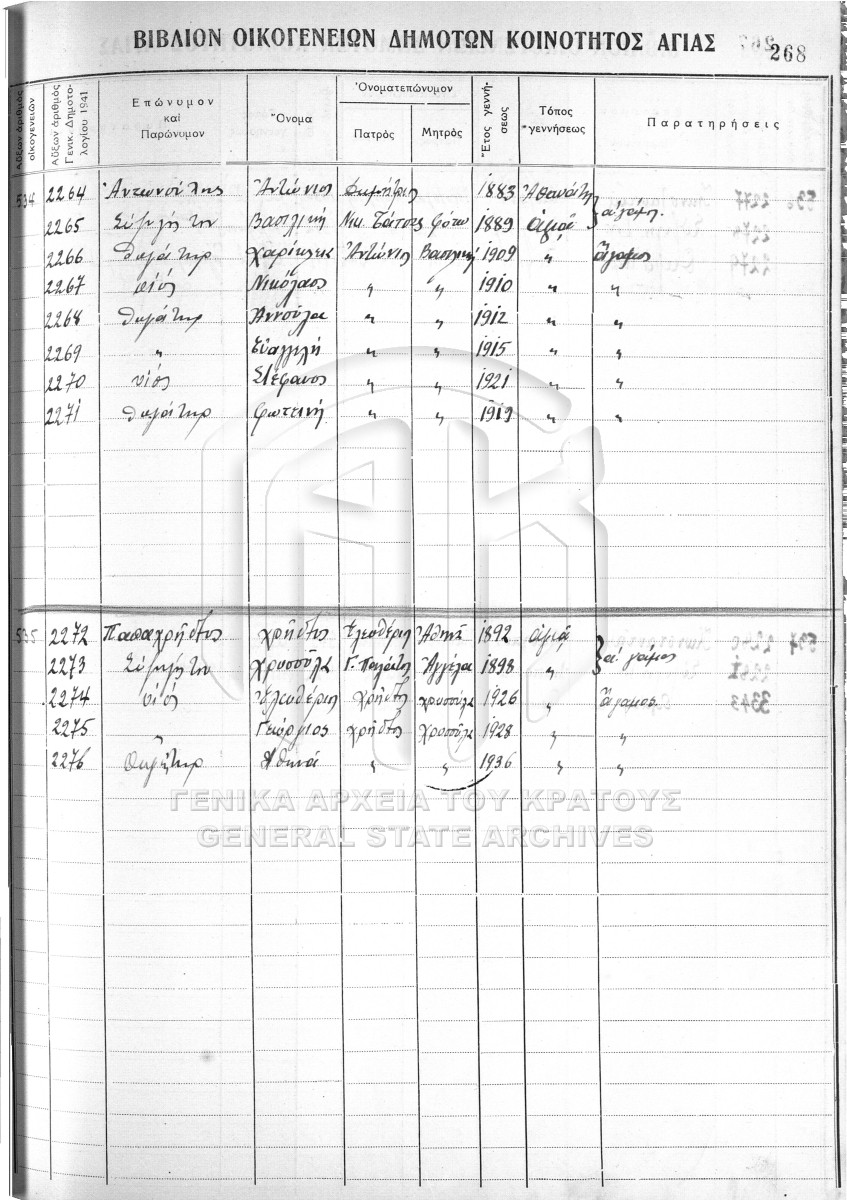 ΒΙΒΛΙΟΝ ΟΙΚΟΓΕΝΕΙΩΝ ΔΗΜΟΤΩΝ ΚΟΙΝΟΤΗΤΟΣ ΑΓΙΑΣ
268
Αὔξων ἀριθμὸς οἰκογενειῶν
Αὔξων ἀριθμὸς Γενικ. Δημοτολογίου 1941
Ἐπώνυμον καὶ Παρώνυμον
Ὄνομα
Ὀνοματεπώνυμον
Πατρὸς
Μητρὸς
Ἔτος γεννήσεως
Τόπος γεννήσεως
Παρατηρήσεις
534 2264 Ἀντωνούλης Ἀντώνιος Δημήτριος 1883
2265 Σύζυγός του Βασιλική Νικ. Φώτω 1889 Ἁγιᾶ α' γάμος
2266 θυγάτηρ Χαρίκλεια Ἀντώνιος Βασιλική 1909 " Ἄγαμος
2267 υἱός Νικόλαος " " 1910 " "
2268 θυγάτηρ Ἀννούλα " " 1912 " "
2269 " Εὐαγγελή " " 1915 " "
2270 υἱός Στέφανος " " 1921 " "
2271 θυγάτηρ Φωτεινή " " 1919 " "
535 2272 Παπαχρῆστος Χρῆστος Ἐλευθέριος Ἀθηνᾶ 1892 Ἁγιᾶ
2273 Σύζυγός του Χρυσούλα Γ. Ἀγγέλω 1898 " α' γάμος
2274 υἱός Ἐλευθέριος Χρῆστος Χρυσούλα 1926 " Ἄγαμος
2275 " Γεώργιος Χρῆστος Χρυσούλα 1928 " "
2276 Θυγάτηρ Ἀθηνᾶ " " 1936 " "
ΓΕΝΙΚΑ ΑΡΧΕΙΑ ΤΟΥ ΚΡΑΤΟΥΣ
GENERAL STATE ARCHIVES